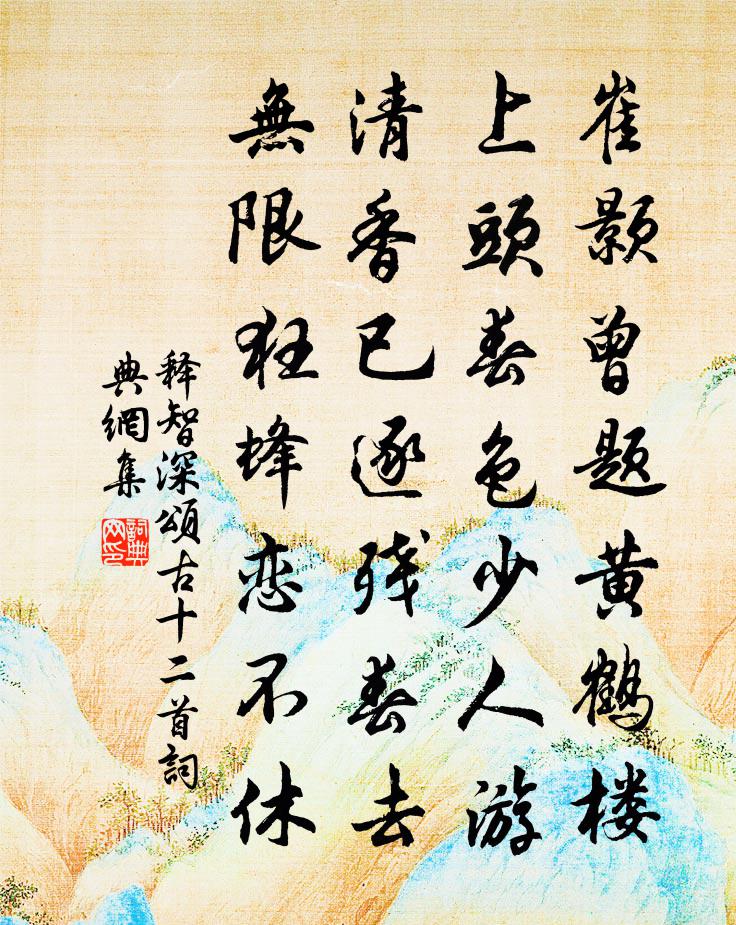 崔颢曾题黄鹤楼
上頭春色少人游
清香已逐残春去
無限狂蜂恋不休
释智深頌古十二首詞
典網集
詞典
网印